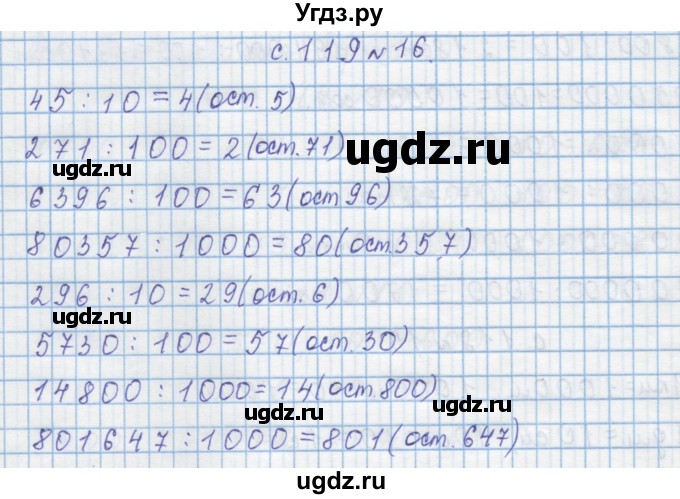 Угдз.ру
с. 119 № 16.
45 : 10 = 4 (ост. 5)
271 : 100 = 2 (ост. 71)
ugdz.ru
ugdz.ru
6396 : 100 = 63 (ост 96)
80357 : 1000 = 80 (ост. 357)
296 : 10 = 29 (ост. 6)
ugdz.ru
5730 : 100 = 57 (ост. 30)
14800 : 1000 = 14 (ост. 800)
ugdz.ru
ugdz.ru
801647 : 1000 = 801 (ост. 647)
ugdz.ru